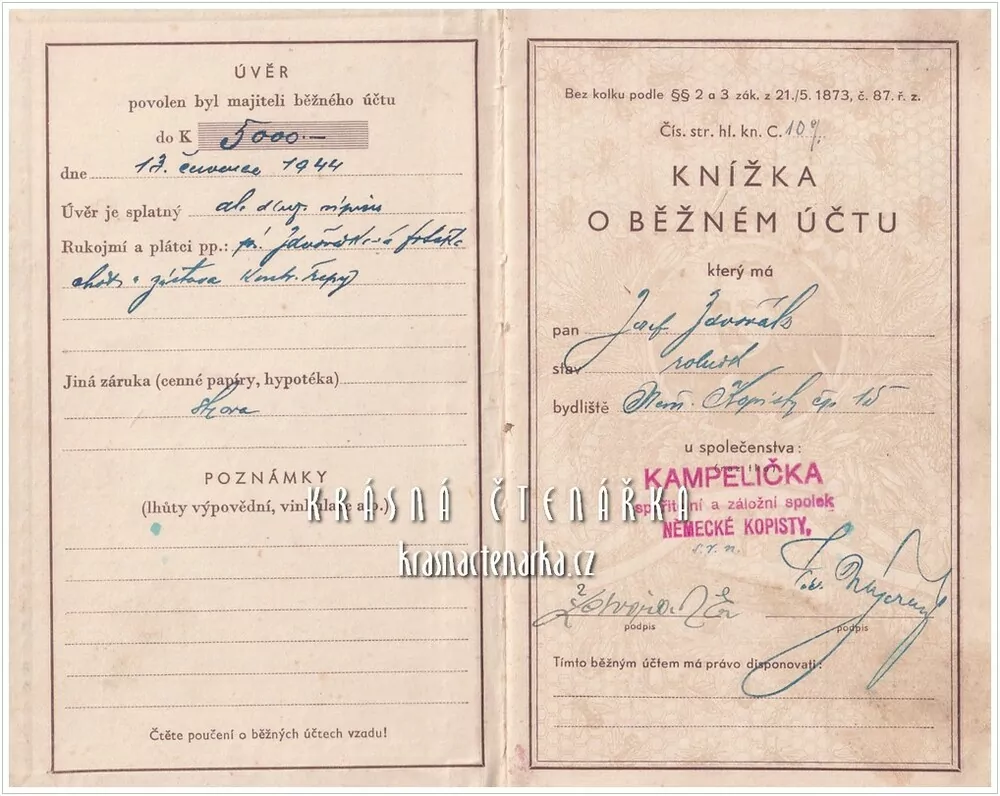 ÚVĚR
povolen byl majiteli běžného účtu
do K 5000.-
dne 17. července 1944
Úvěr je splatný dle dluž. úpisu
Rukojmí a plátci pp.: pí. Zdvořáková
Jiná záruka (cenné papíry, hypotéka)
POZNÁMKY
(lhůty výpovědní, vinkulace a p.)
Čtěte poučení o běžných účtech vzadu!
Bez kolku podle §§ 2 a 3 zák. z 21./5. 1873, č. 87. ř. z.
Čís. str. hl. kn. C.
KNÍŽKA
O BĚŽNÉM ÚČTU
který má
pan Josef Zdvořák
stav rolník
bydliště Něm. Kopisty čp 15
u společenstva:
KAMPELIČKA
spořitelní a záložní spolek
NĚMECKÉ KOPISTY,
s. r. n.
podpis podpis
Tímto běžným účtem má právo disponovati:
KRÁSNÁ ČTENÁŘKA
krasnactenarka.cz